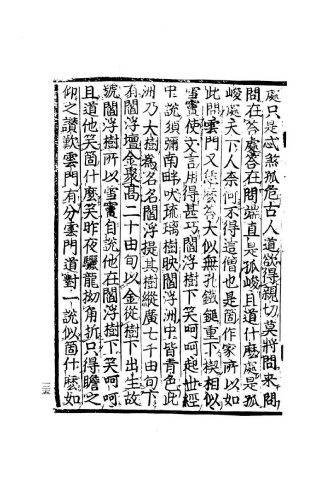 處只是忒煞孤危古人道欲得親切莫將問來問
問在答處答在問端直是孤峻且道什麼處是孤
峻處天下人奈何不得這僧也是箇作家所以如
此問雲門又恁麼答大似無孔鐵鎚重下楔相似
雪竇使文言用得甚巧閻浮樹下笑呵呵起世經
中說須彌南畔吠琉璃樹映閻浮洲中皆青色此
洲乃大樹為名名閻浮提其樹縱廣七千由旬下
有閻浮壇金聚高二十由旬以金從樹下出生故
號閻浮樹所以雪竇自說他在閻浮樹下笑呵呵
且道他笑箇什麼笑昨夜驪龍拗角折只得瞻之
仰之讚歎雲門有分雲門道對一說似箇什麼如